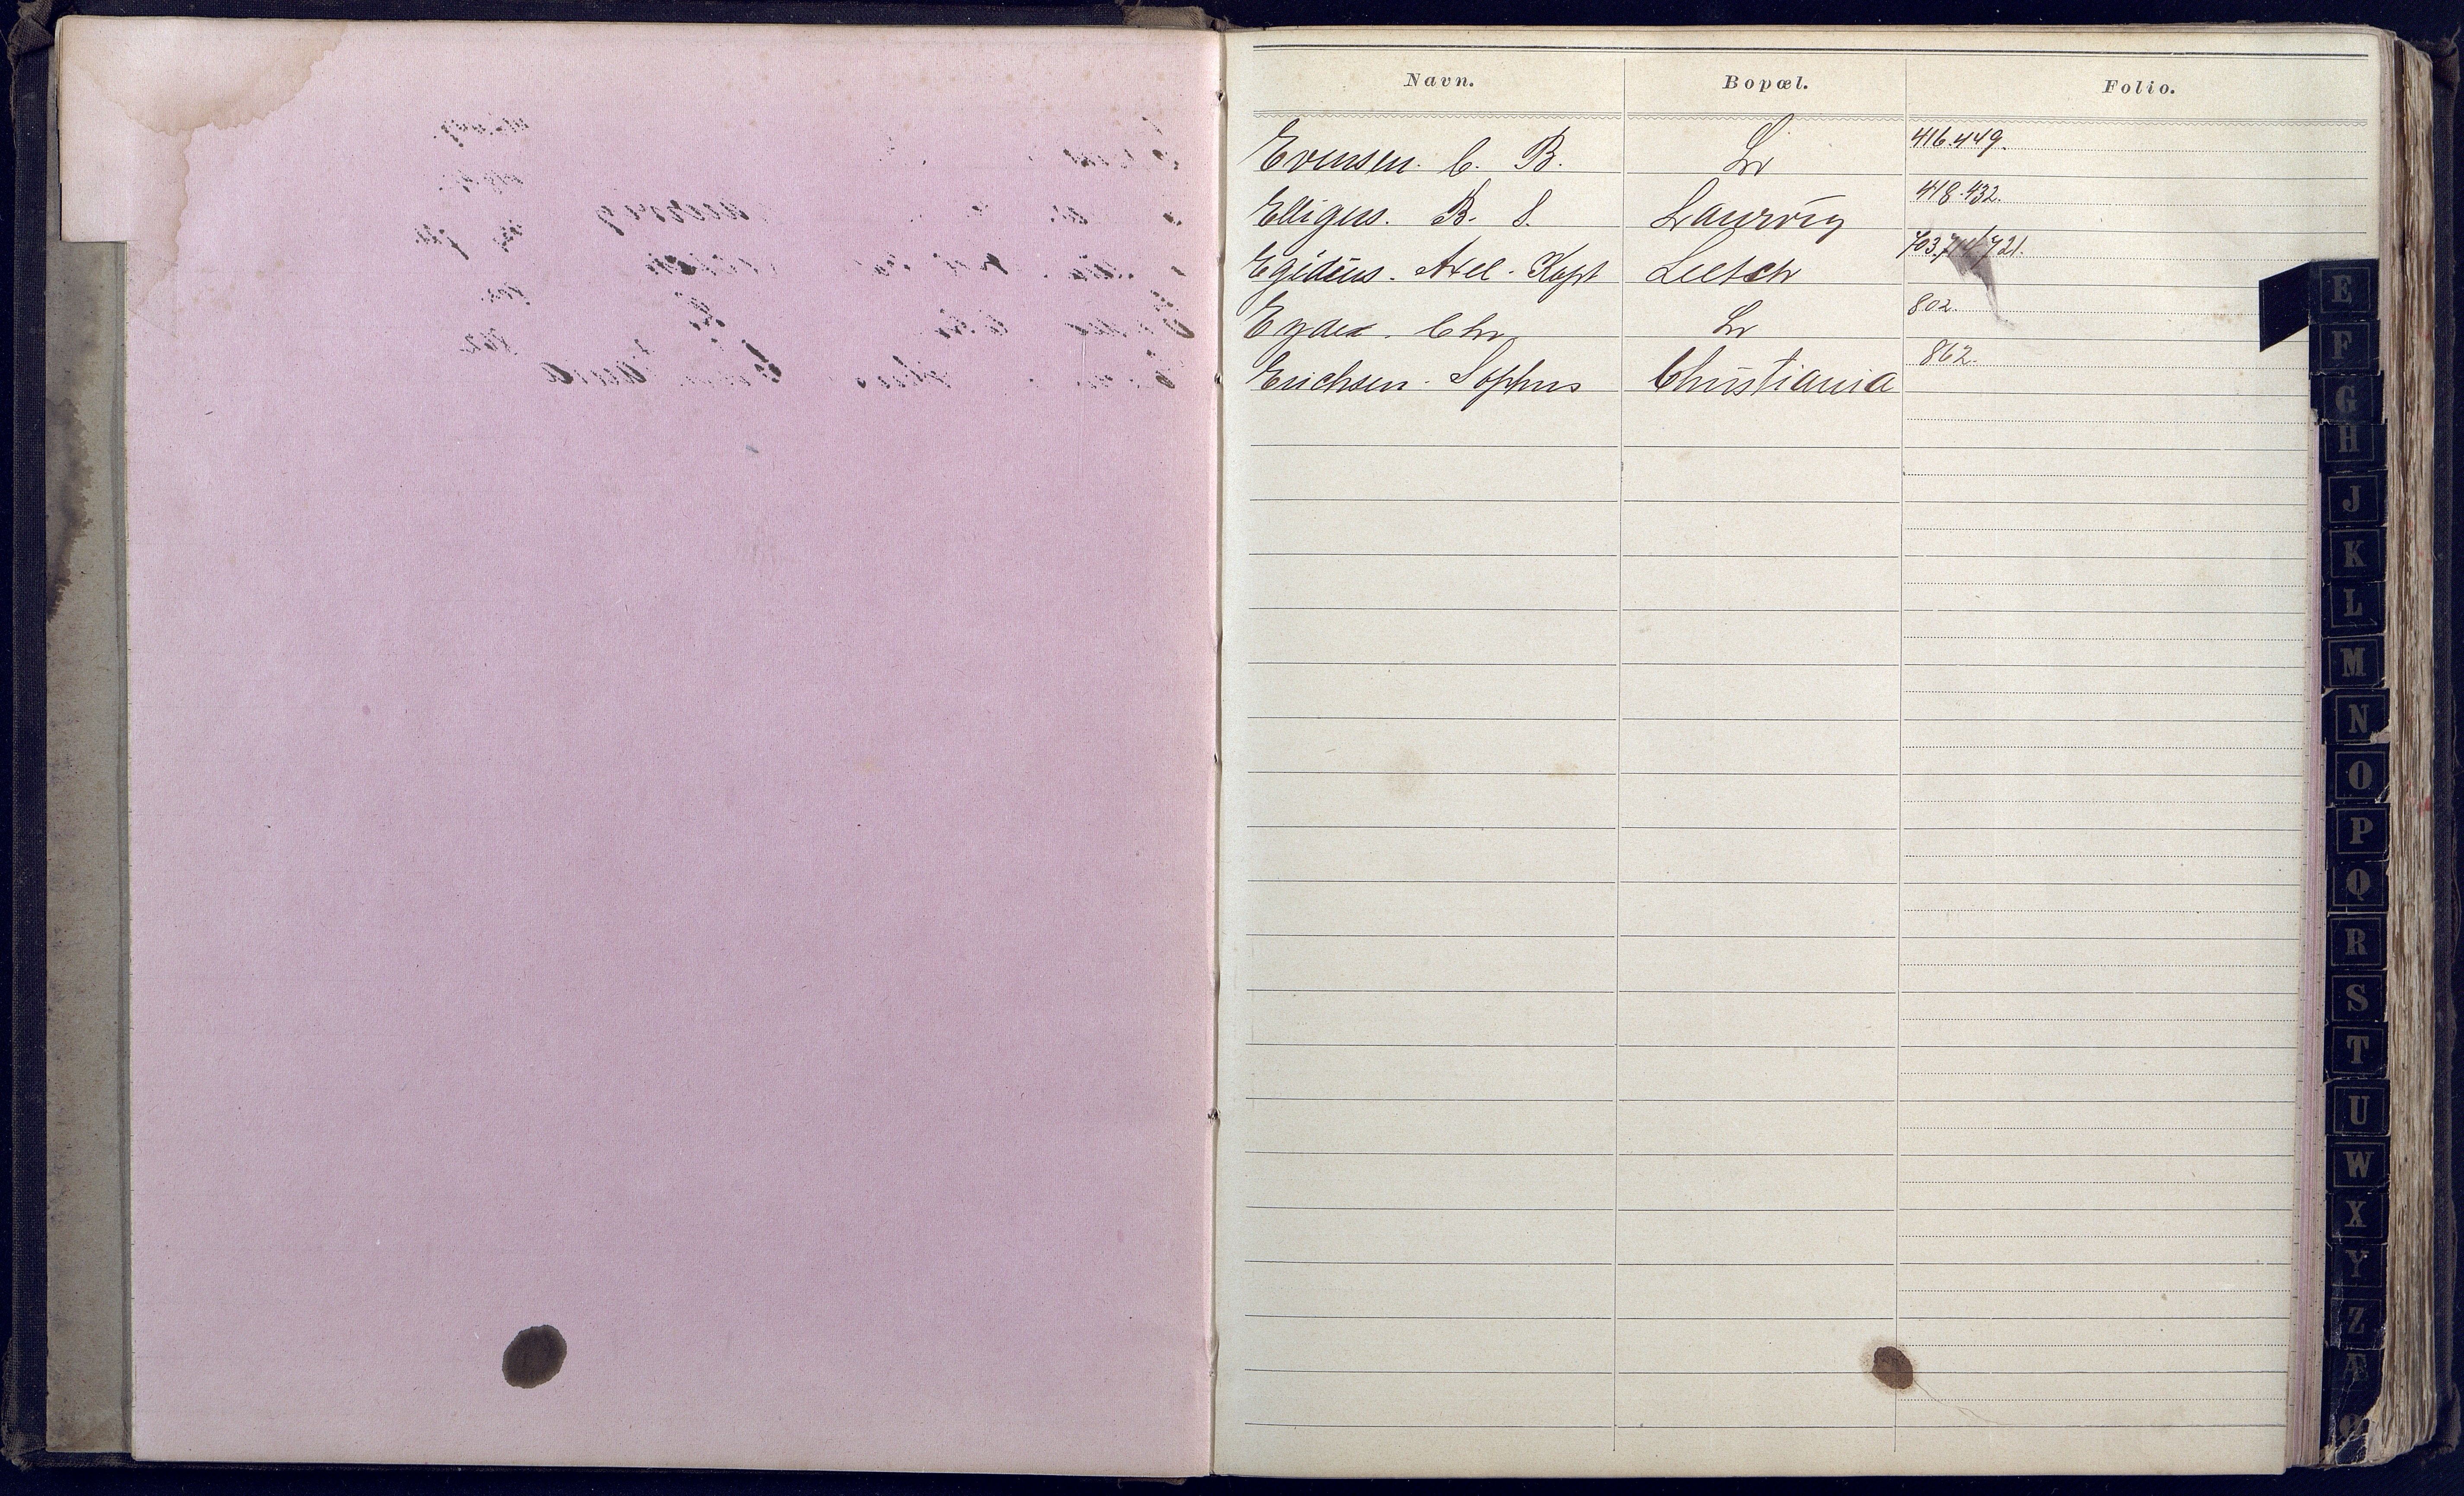 Navn. Bopæl. Folio.
Evensen. C. B. Lr 416.449.
Elligers. B. S. Laurvig 418.432.
Egidius. Axel. Kapt 703.714.721.
Eyde. Chr Lr 802.
Erichsen. Sophus Christiania 862.
E
F
G
H
J
K
L
M
N
O
P
Q
R
S
T
U
W
X
Y
Z
Æ
Ø